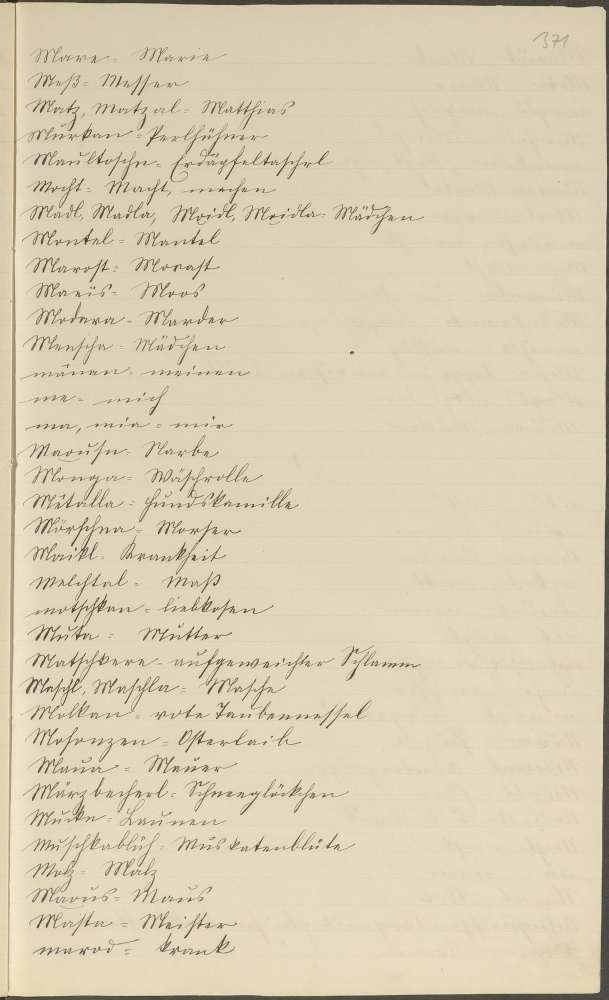 371
Mare = Marie
Meß = Messer
Matz, Matzal = Matthias
Murkan = Perlhühner
Maultoschn = Erdäpfeltaschrl
Mocht = Macht, machen
Madl, Madla, Moidl, Moidla = Mädchen
Montel = Mantel
Marost = Morast
Maeis = Moos
Modara = Marder
Menscha = Mädchen
mänan = meinen
me = mich
ma, mia = mir
Maousn = Narbe
Monga = Wäschrolle
Métalla = Hundskamille
Mörschna = Morser
Maikl = Krankheit
Melchtal = Maß
motschkan = liebkosen
Muta = Mutter
Matschkere = aufgeweichter Schlamm
Maschl, Maschla = Masche
Molkan = rote Taubennessel
Mosonzen = Osterlaib
Maua = Mauer
Märzbecherl = Schneeglöckchen
Muckn = Launen
Muschkablüh = Muskatenblüte
Molz = Malz
Maous = Maus
Masta = Meister
marod = krank